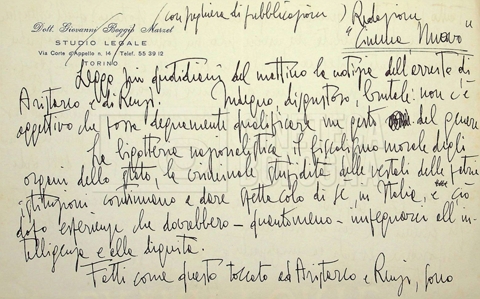 (con preghiera di pubblicazione) Redazione
"Cinema Nuovo"
Dott. Giovanni Reggio Marzet
STUDIO LEGALE
Via Corte d'Appello n. 14 - Telef. 55 39 12
TORINO
Leggo sui quotidiani del mattino la notizia dell'arresto di
Aristarco e di Renzi. Indegno, disgustoso, brutale: non c'è
aggettivo che possa degnamente qualificare un gesto del genere
La bigotteria nazionalistica il fiscalismo morale degli
organi dello stato, la criminale stupidità delle vestali delle patrie
istituzioni continuano a dare spettacolo di sé, in Italia, e ciò
dopo esperienze che dovrebbero - quantomeno - insegnarci all'in-
telligenza e alla dignità.
Fatti come questo toccato ad Aristarco e Renzi, sono